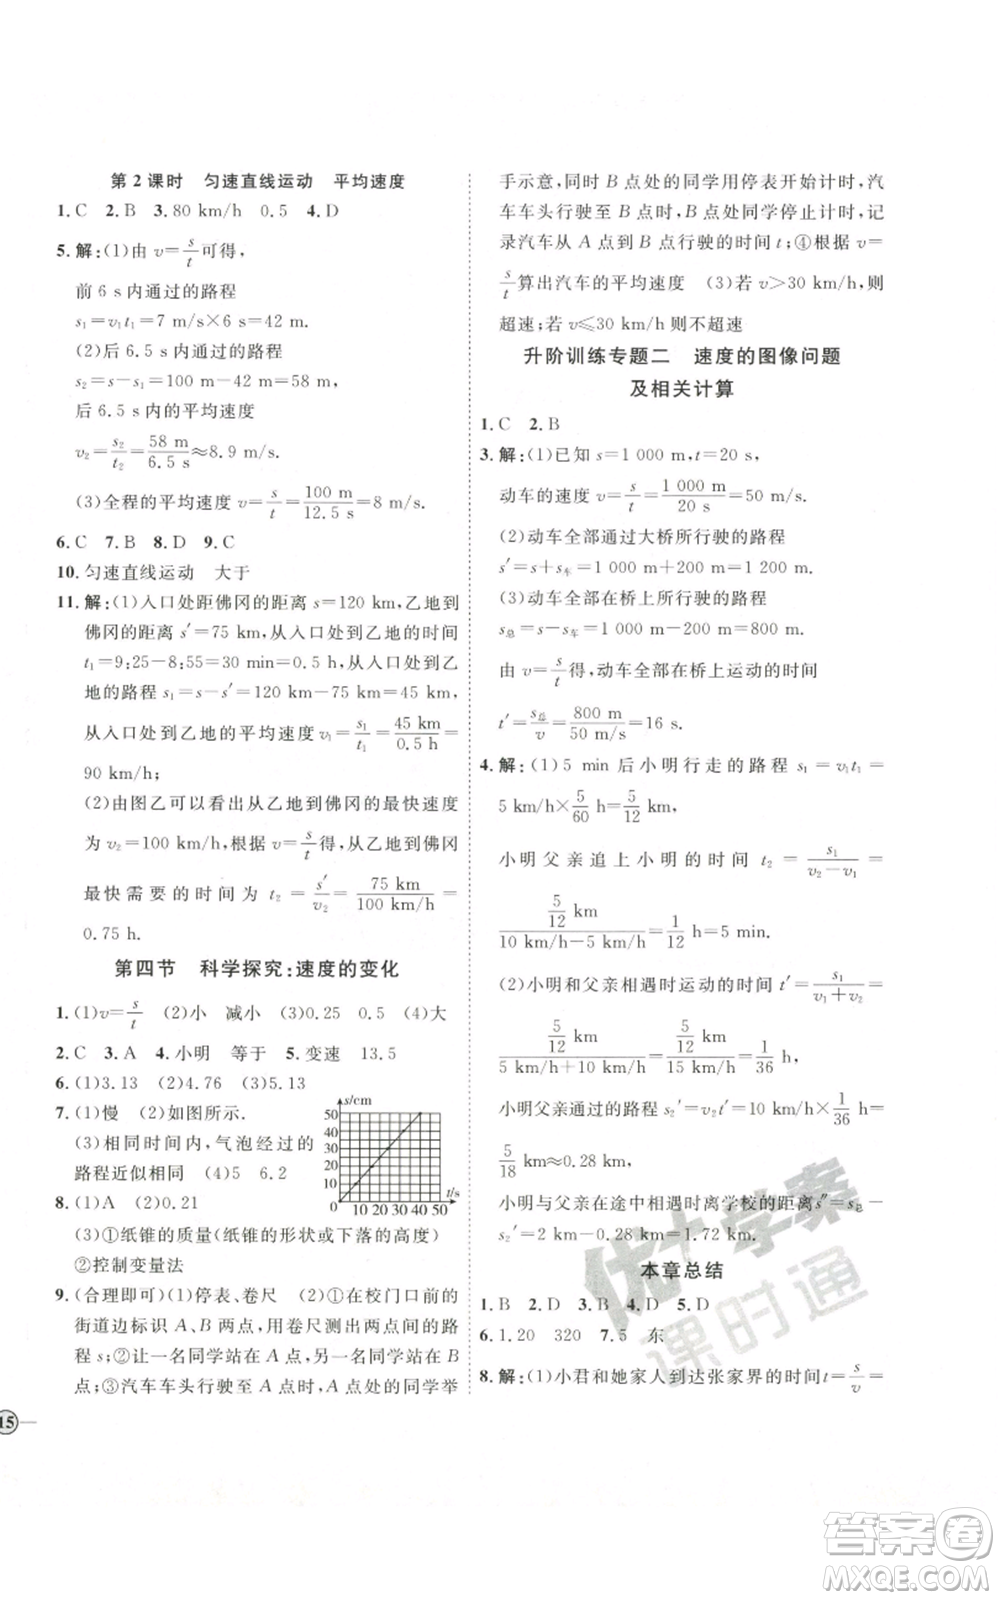 第2课时 匀速直线运动 平均速度
1. C 2. B 3. 80 km/h 0.5 4. D
5. 解:(1)由 v=s/t可得,
前 6 s内通过的路程
s₁=v₁t₁=7 m/s×6 s=42 m.
(2)后 6.5 s内通过的路程
s₂=s-s₁=100 m-42 m=58 m,
后 6.5 s内的平均速度
v₂=s₂/t₂=58 m/6.5 s≈8.9 m/s.
(3)全程的平均速度 v=s/t=100 m/12.5 s=8 m/s.
6. C 7. B 8. D 9. C
10. 匀速直线运动 大于
11. 解:(1)入口处距佛冈的距离 s=120 km,乙地到
佛冈的距离 s′=75 km,从入口处到乙地的时间
t₁=9:25-8:55=30 min=0.5 h,从入口处到乙
地的路程 s₁=s-s′=120 km-75 km=45 km,
从入口处到乙地的平均速度 v₁=s₁/t₁=45 km/0.5 h=
90 km/h;
(2)由图乙可以看出从乙地到佛冈的最快速度
为 v₂=100 km/h,由 v=s/t得,从乙地到佛冈
最快需要的时间为 t₂=s′/v₂=75 km/100 km/h=
0.75 h.
第四节 科学探究:速度的变化
1. (1)v=s/t (2)小 减小 (3)0.25 0.5 (4)大
2. C 3. A 4. 小明 等于 5. 变速 13.5
6. (1)3.13 (2)4.76 (3)5.13
7. (1)慢 (2)如图所示.
(3)相同时间内,气泡经过的
路程近似相同 (4)5 6.2
s/cm
50
40
30
20
10
0 10 20 30 40 50 t/s
8. (1)A (2)0.21
(3)①纸锥的质量(纸锥的形状或下落的高度)
②控制变量法
9. (合理即可)(1)停表、卷尺 (2)①在校门口前的
街道边标识 A、B 两点,用卷尺测出两点间的路
程 s;②让一名同学站在 A 点,另一名同学站在 B
点;③汽车车头行驶至 A 点时,A 点处的同学举
手示意,同时 B 点处的同学用停表开始计时,汽
车车头行驶至 B 点时,B 点处同学停止计时,记
录汽车从 A 点到 B 点行驶的时间 t;④根据 v=
s/t算出汽车的平均速度 (3)若 v>30 km/h,则
超速;若 v≤30 km/h 则不超速
升阶训练专题二 速度的图像问题
及相关计算
1. C 2. B
3. 解:(1)已知 s=1 000 m,t=20 s,
动车的速度 v=s/t=1 000 m/20 s=50 m/s.
(2)动车全部通过大桥所行驶的路程
s′=s+s车=1 000 m+200 m=1 200 m.
(3)动车全部在桥上所行驶的路程
s总=s-s车=1 000 m-200 m=800 m.
由 v=s/t得,动车全部在桥上运动的时间
t′=s总/v=800 m/50 m/s=16 s.
4. 解:(1)5 min 后小明行走的路程 s₁=v₁t₁=
5 km/h×5/60 h=5/12 km,
小明父亲追上小明的时间 t₂=s₁/(v₂-v₁)=
5/12 km/(10 km/h-5 km/h)=1/12 h=300 s.
(2)小明和父亲相遇时运动的时间 t′=s₁/(v₁+v₂)=
5/12 km/(5 km/h+10 km/h)=5/12 km/15 km/h=1/36 h,
小明父亲通过的路程 s₂′=v₂t′=10 km/h×1/36 h=
5/18 km≈0.28 km,
小明与父亲在途中相遇时离学校的距离 s″=s总-
s₂′=2 km-0.28 km=1.72 km.
本章总结
1. B 2. D 3. B 4. D 5. D
6. 1.20 320 7. 5 东
8. 解:(1)小君和她家人到达张家界的时间t=s/v=
15
优+学案
课时通
答案卷
MXQE.COM